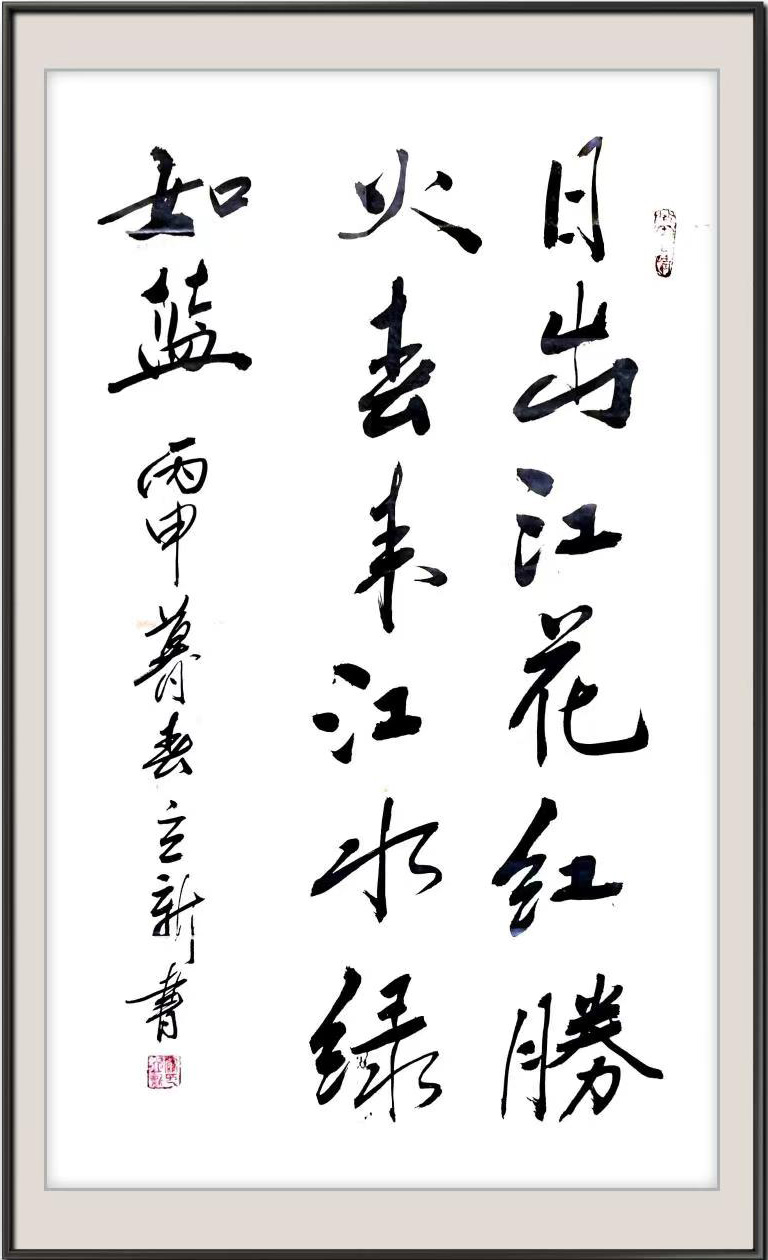 日出江花红勝
火春来江水绿
如蓝
丙申暮春立新书